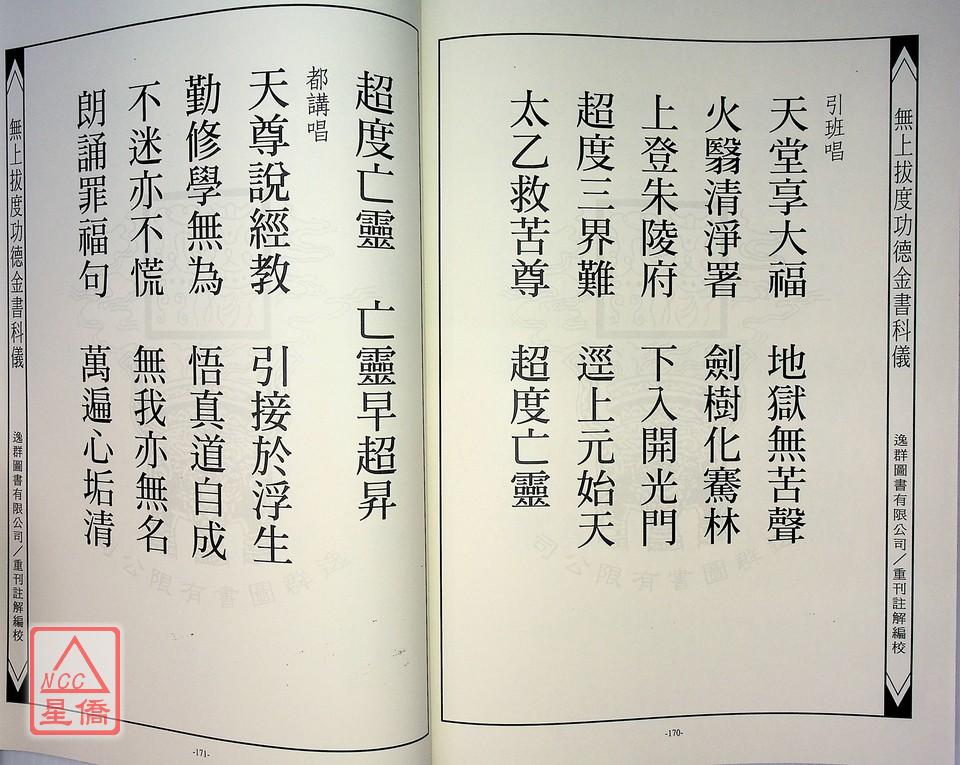 無上拔度功德金書科儀
逸群圖書有限公司／重刊註解編校
引班唱
天堂享大福 地獄無苦聲
火翳清淨署 劍樹化騫林
上登朱陵府 下入開光門
超度三界難 逕上元始天
太乙救苦尊 超度亡靈
-170-
超度亡靈 亡靈早超昇
都講唱
天尊說經教 引接於浮生
勤修學無為 悟真道自成
不迷亦不慌 無我亦無名
朗誦罪福句 萬遍心垢清
無上拔度功德金書科儀
逸群圖書有限公司／重刊註解編校
-171-
逸群圖書有限公司
NCC
星僑